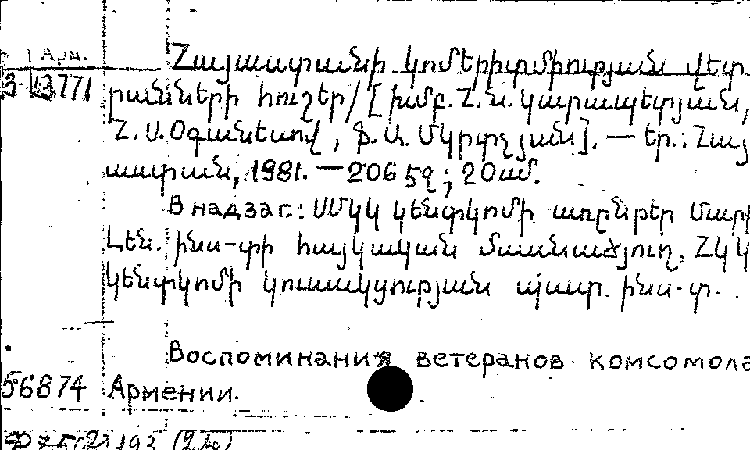 Арм.
Հայաստանի կոմերիտմիության վետ
3 13771 րանների հուշեր/[խմբ. Հ. Ն. Կարապետյան,
Հ. Ս. Օգանեսով, Ֆ. Ա. Մկրտչյան]. — Եր.: Հայ
աստան, 1981. — 206 էջ; 20 սմ.
В надзаг.: ՍՄԿԿ Կենտկոմի առընթեր Մարք
Լեն. ինս-տի հայկական մասնաճյուղ, ՀԿԿ
կենտկոմի կուսակցության պատ. ինս-տ.
Воспоминания ветеранов комсомола
56874 Армении.